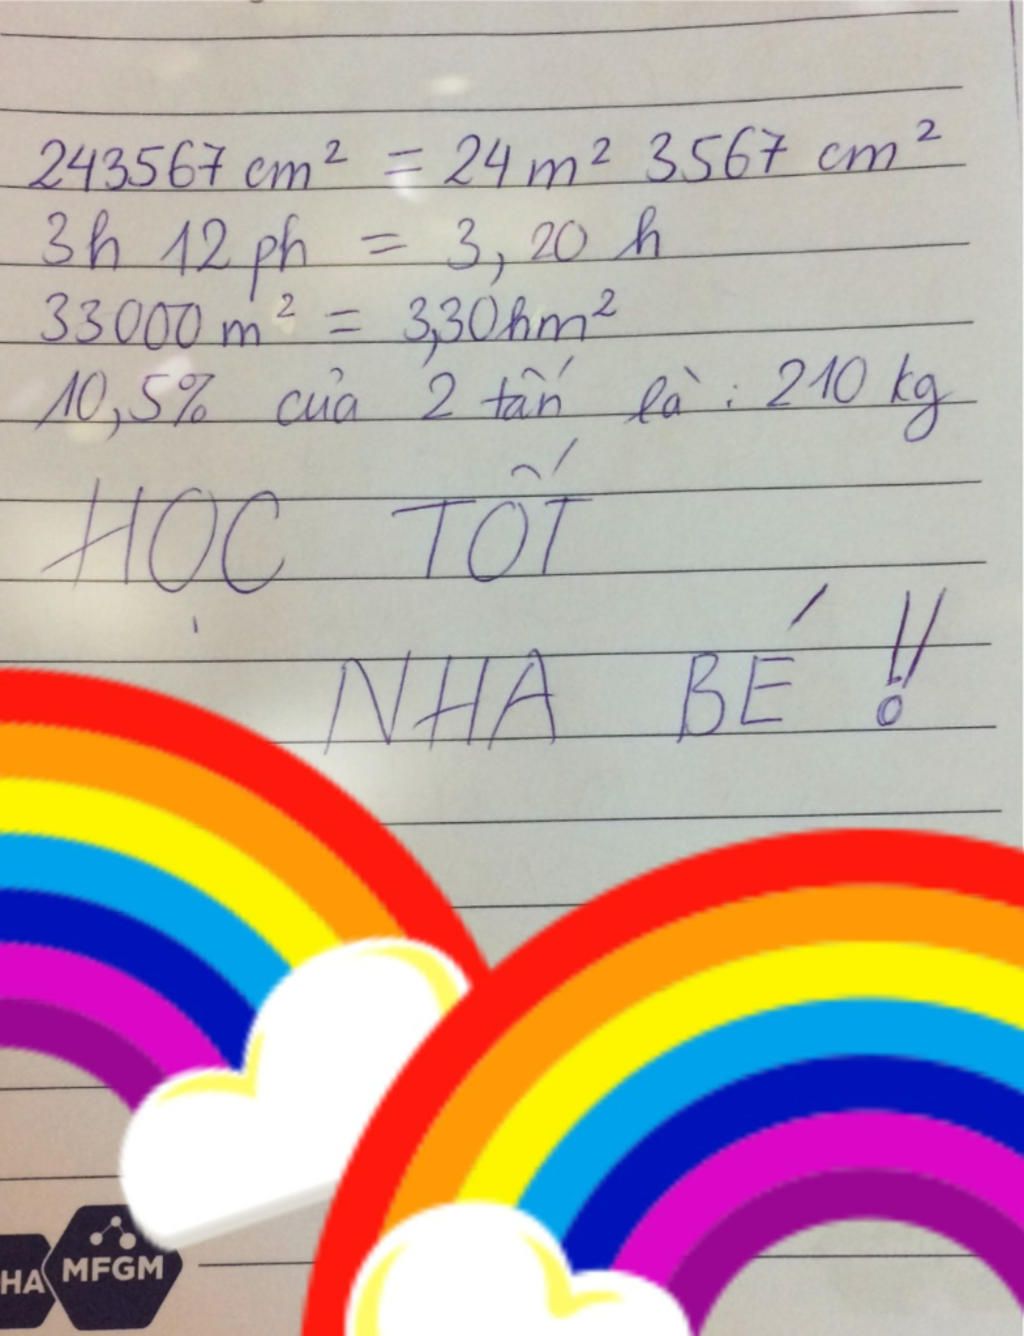 243567 cm² = 24 m² 3567 cm²
3h 12 ph = 3,20 h
33000 m² = 3,30hm²
10,5% của 2 tấn là : 210 kg
HỌC TỐT
NHA BÉ !!
HA MFGM